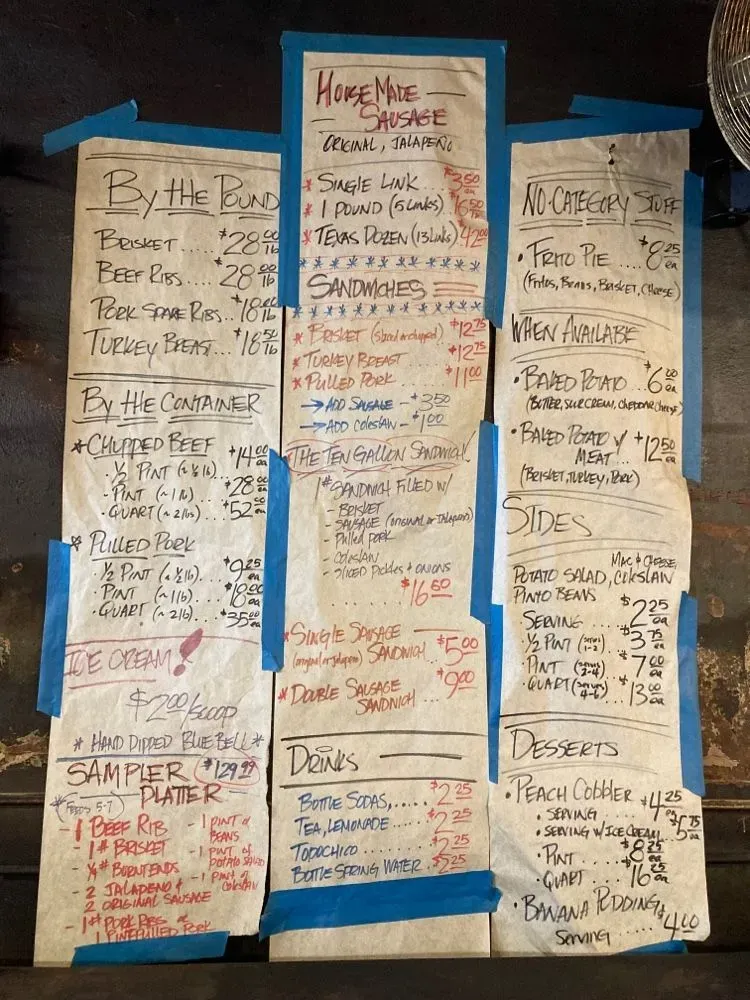 By the Pound
Brisket .... $28.00 lb
Beef Ribs ... $28.00 lb
Pork Spare Ribs .. $18.00 lb
Turkey Breast... $18.50 lb
By the Container
* Chopped Beef
· 1/2 Pint (~ 1/2 lb) .. $14.00 ea
· Pint (~ 1 lb) ... $28.00 ea
· Quart (~ 2 lbs) ... $52.00 ea
* Pulled Pork
1/2 Pint (~ 1/2 lb).... $9.25 ea
· Pint (~ 1 lb) .... $18.00 ea
· Quart (~ 2 lb) .... $35.00 ea
Ice Cream!
$2.00/scoop
* Hand Dipped Blue Bell *
Sampler $129.99
Platter
* Feeds 5-7
- 1 Beef Rib
- 1# Brisket
- 1/4# Burnt Ends
- 2 Jalapeno &
2 Original Sausage
- 1# Pork Ribs or
1 Pint Pulled Pork
- 1 Pint of
Beans
- 1 Pint of
Potato Salad
- 1 Pint of
Coleslaw
House Made
Sausage
Original, Jalapeño
* Single Link .... $3.50 ea
* 1 Pound (5 Links) . $16.50
* Texas Dozen (13 Links) $42.00
Sandwiches
* Brisket (sliced or chopped) $12.75
* Turkey Breast .... $12.75
* Pulled Pork .... $11.00
→ Add Sausage - $3.50
→ Add Coleslaw - $1.00
The Ten Gallon Sandwich!
1# Sandwich Filled w/
- Brisket
- Sausage (original or Jalapeno)
- Pulled Pork
- Coleslaw
- Sliced Pickles & Onions
...... $16.50
* Single Sausage
(original or Jalapeno) Sandwich .. $5.00
* Double Sausage
Sandwich ... $9.00
Drinks
Bottle Sodas, ..... $2.25
Tea, Lemonade .... $2.25
Topochico ....... $2.25
Bottle Spring Water .. $2.25
No Category Stuff
· Frito Pie .... $8.25 ea
(Fritos, Beans, Brisket, Cheese)
When Available
· Baked Potato ... $6.00 ea
(Butter, Sour Cream, Cheddar Cheese)
· Baked Potato w/
Meat ... $12.50 ea
(Brisket, Turkey, Pork)
Sides
Mac & Cheese,
Potato Salad, Coleslaw
Pinto Beans
Serving ...... $2.25 ea
· 1/2 Pint (serves 1-2) .. $3.75 ea
· Pint (serves 2-4) ... $7.00 ea
· Quart (serves 4-6) .. $13.00 ea
Desserts
· Peach Cobbler
· Serving ...... $4.25 ea
· Serving w/ Ice Cream $5.75 ea
· Pint ..... $8.25 ea
· Quart .... $16.25 ea
· Banana Pudding
Serving .... $4.00